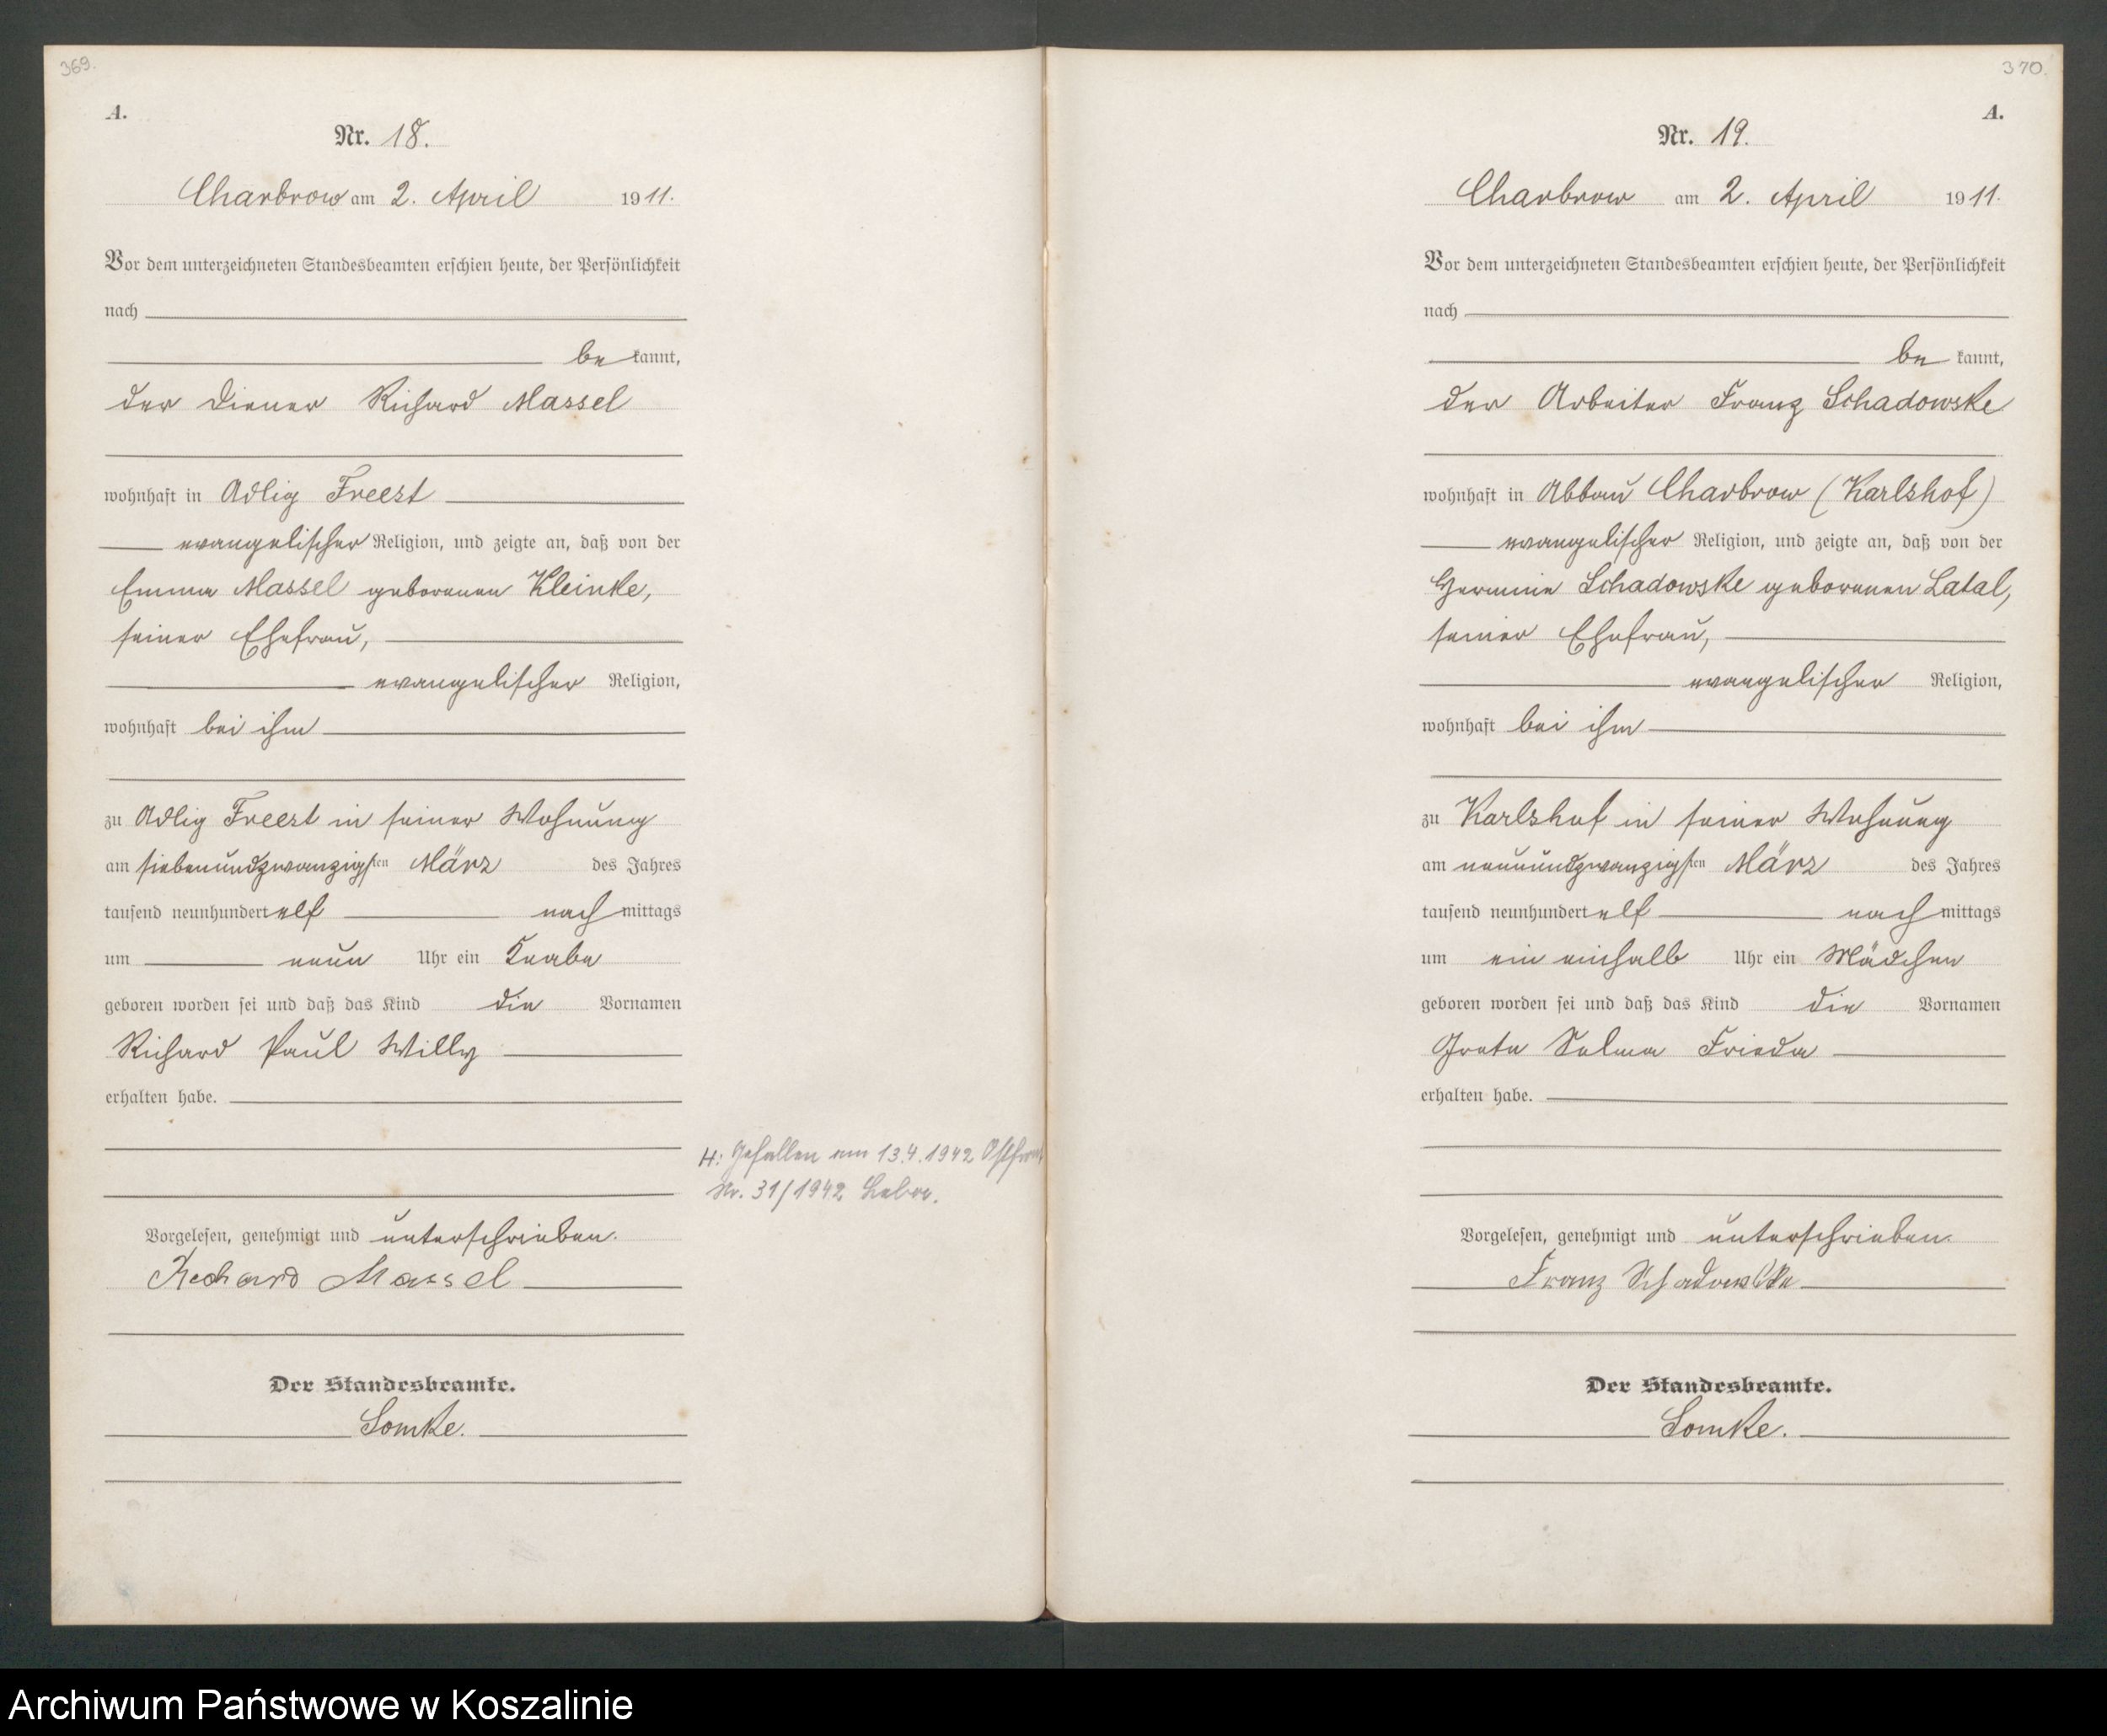 369.
A.
Nr. 18.
Charbrow am 2. April 1911.
Vor dem unterzeichneten Standesbeamten erschien heute, der Persönlichkeit
nach
be kannt,
der Diener Richard Massel
wohnhaft in Adlig Freest
evangelischer Religion, und zeigte an, daß von der
Emma Massel geborenen Kleinke,
seiner Ehefrau,
evangelischer Religion,
wohnhaft bei ihm
zu Adlig Freest in seiner Wohnung
am siebenundzwanzigsten März des Jahres
tausend neunhundert elf nach mittags
um neun Uhr ein Knabe
geboren worden sei und daß das Kind die Vornamen
Richard Paul Willy
erhalten habe.
H: Gefallen am 13.4.1942 Ostfront
Nr. 31/1942
Vorgelesen, genehmigt und unterschrieben.
Richard Massel
Der Standesbeamte.
Somke.
370.
A.
Nr. 19.
Charbrow am 2. April 1911.
Vor dem unterzeichneten Standesbeamten erschien heute, der Persönlichkeit
nach
be kannt,
der Arbeiter Franz Schadowske
wohnhaft in Abbau Charbrow (Karlshof)
evangelischer Religion, und zeigte an, daß von der
Hermine Schadowske geborenen Latal,
seiner Ehefrau,
evangelischer Religion,
wohnhaft bei ihm
zu Karlshof in seiner Wohnung
am neunundzwanzigsten März des Jahres
tausend neunhundert elf nach mittags
um ein einhalb Uhr ein Mädchen
geboren worden sei und daß das Kind die Vornamen
Grete Selma Frieda
erhalten habe.
Vorgelesen, genehmigt und unterschrieben.
Franz Schadowske
Der Standesbeamte.
Somke.
Archiwum Państwowe w Koszalinie